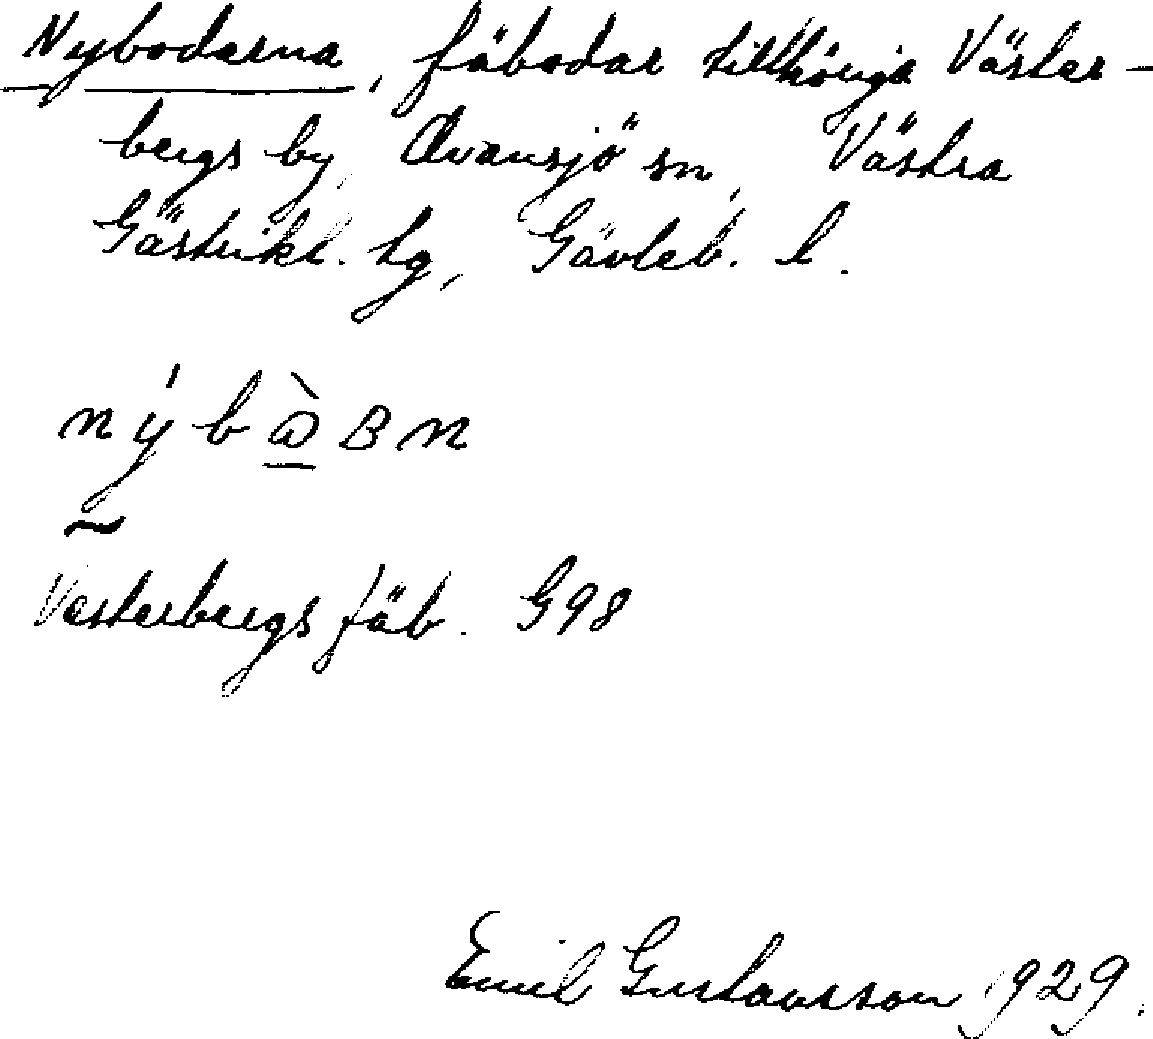 Nybodarna, fäbodar tillhöriga Väster-
bergs by, Ovansjö sn, Västra
Gästrikl. tg, Gävleb. l.
nýbὼʙn
~
Vesterbergs fäb. G98
Emil Gustavsson 1929.